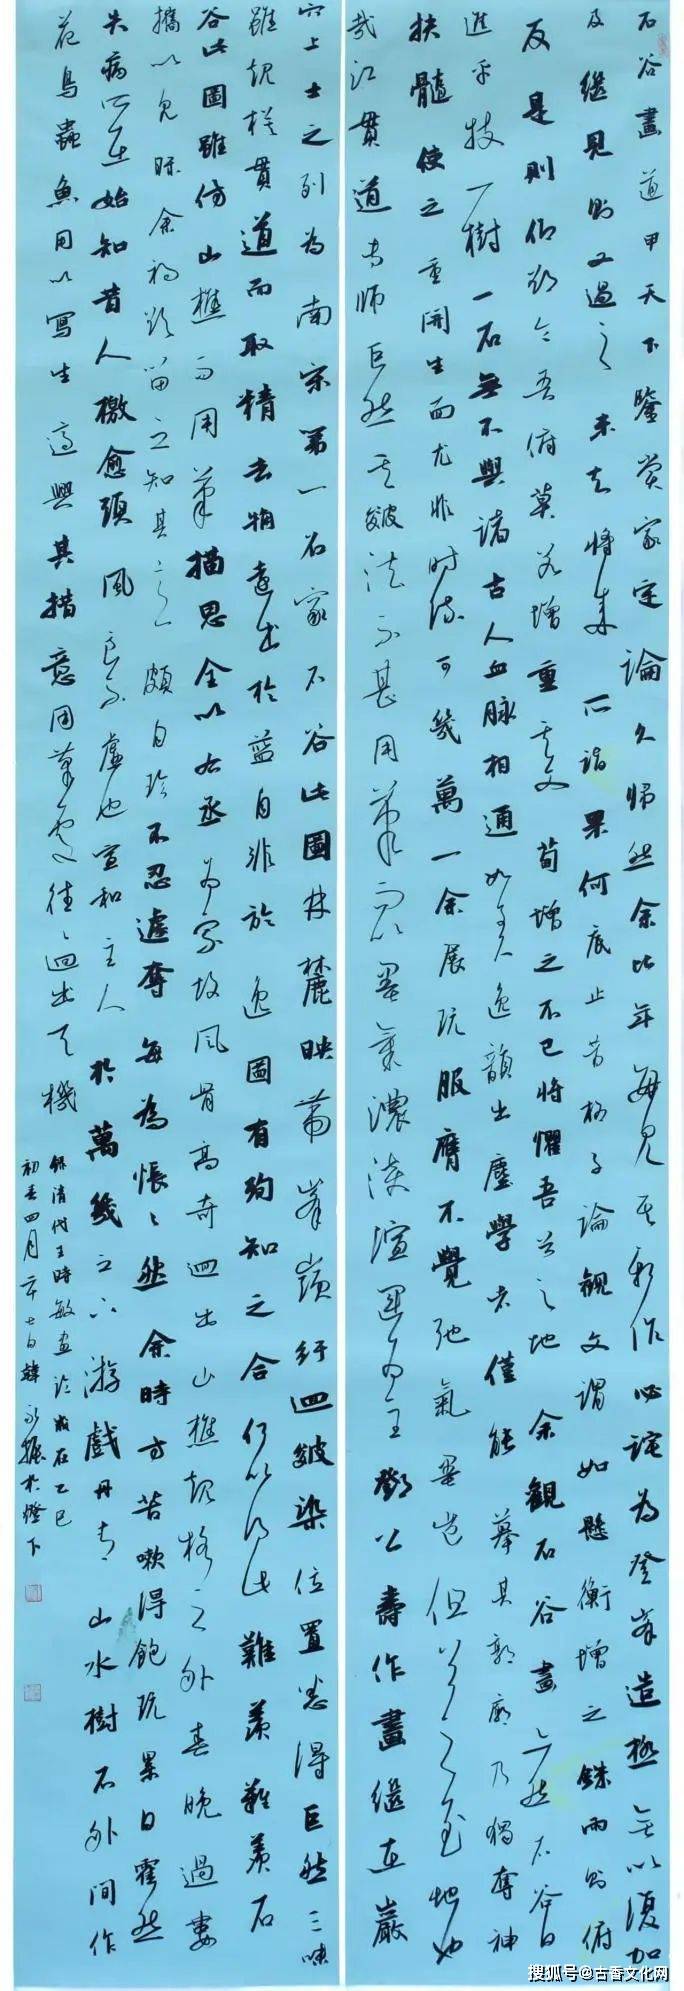 石谷畫道甲天下鑒賞家定論久歸然余比年每見其新作必詫為登峯造極無以復加
及繼見則又過之未知將來所詣果何底止昔桓子論觀文謂如懸衡增之銖兩則俯
反是則仰欲令吾俯莫若增重其文苟增之不已將懼吾首之地余觀石谷畫亦然石谷日
進乎技一樹一石無不與諸古人血脉相通如其逸韻出塵學者僅能摹其郭廓乃獨奪神
抉髓使之重開生面尤非時流可幾萬一余展玩服膺不覺弛氣墨豈但首之至地也
哉江貫道专師巨然其皴法不甚用筆而以墨氣濃淡渲運為主鄧公壽作畫繼在巖
穴上士之列為南宋第一名家石谷此圖林麓映带峯嶺紆迴皴染位置悉得巨然三昧
雖規模貫道而取精去粗遠出於藍自非於逸圖有殉知之合何以得此難羨難羨石
谷此圖雖仿山樵而用筆描思全以右丞為宗故風骨高奇迴出山樵規格之外春晚過婁
携以見眎余初欲留之知其意頗自珍不忍遽奪每為悵悵然余時方苦嗽得飽玩累日霍然
失病所在始知昔人檄愈頭風良不虛也宣和主人於萬幾之下游戲丹青山水樹石外間作
花鳥蟲魚用以寫生適興其措意用筆處往往迴出天機
録清代王時敏畫論 歲在乙巳
初春四月二十七日韓永振於燈下
搜狐号@古香文化网